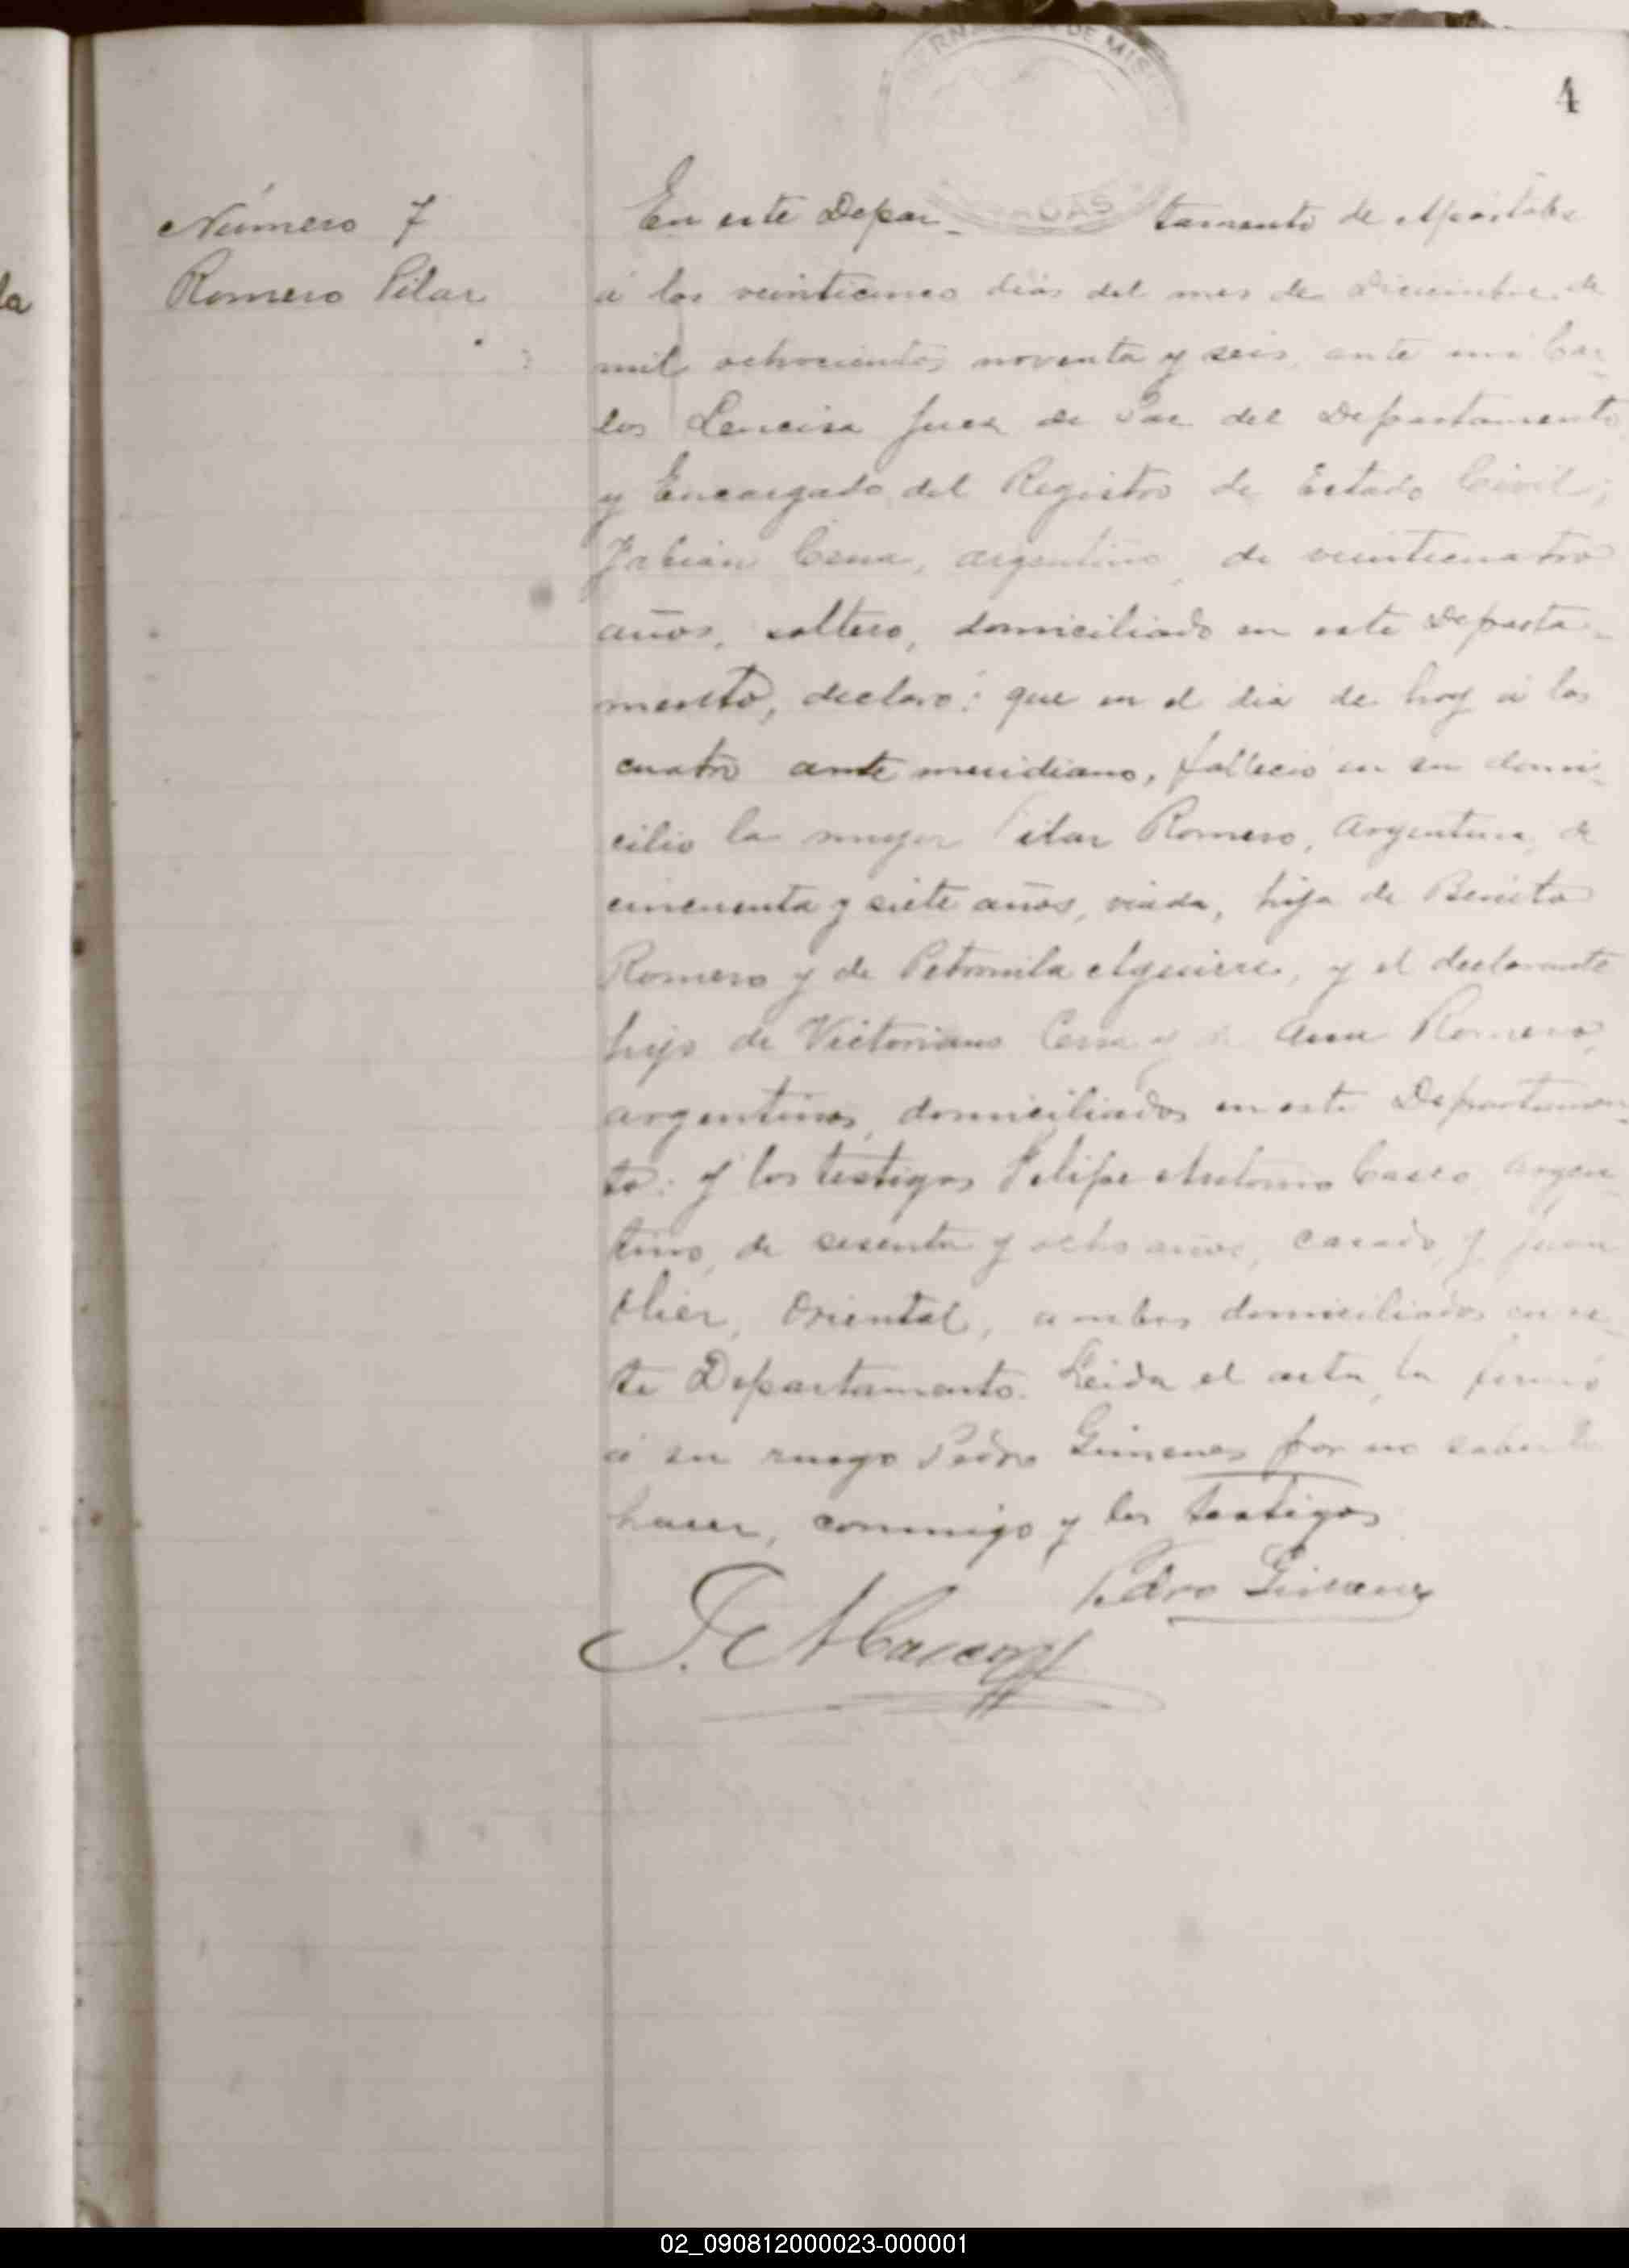 4
Número 7
Romero Pilar
la
En este Depar- tamento de Apóstoles
á los veinticinco dias del mes de Diciembre de
mil ochocientos noventa y seis, ante mi Car-
los Lencisa Juez de Paz del Departamento
y Encargado del Registro de Estado Civil;
Fabian Cena, argentino, de veinticuatro
años, soltero, domiciliado en este Departa-
mento, declaró: que en el dia de hoy á las
cuatro ante meridiano, falleció en su domi-
cilio la mujer Pilar Romero, Argentina, de
cincuenta y siete años, viuda, hija de Benito
Romero y de Petronila Aguirre, y el declarante
hijo de Victoriano Cena y de Ana Romero,
argentinos, domiciliados en este Departamen-
to: y los testigos Felipe Antonio Casco Argen-
tino, de sesenta y ocho años, casado, y Juan
Olier, Oriental, ambos domiciliados en es-
te Departamento. Leida el acta, la firmó
á su ruego Pedro Gimenes por no saber
hacer, conmigo y los testigos
Pedro Gimenez
F. A Casco
02_090812000023-000001